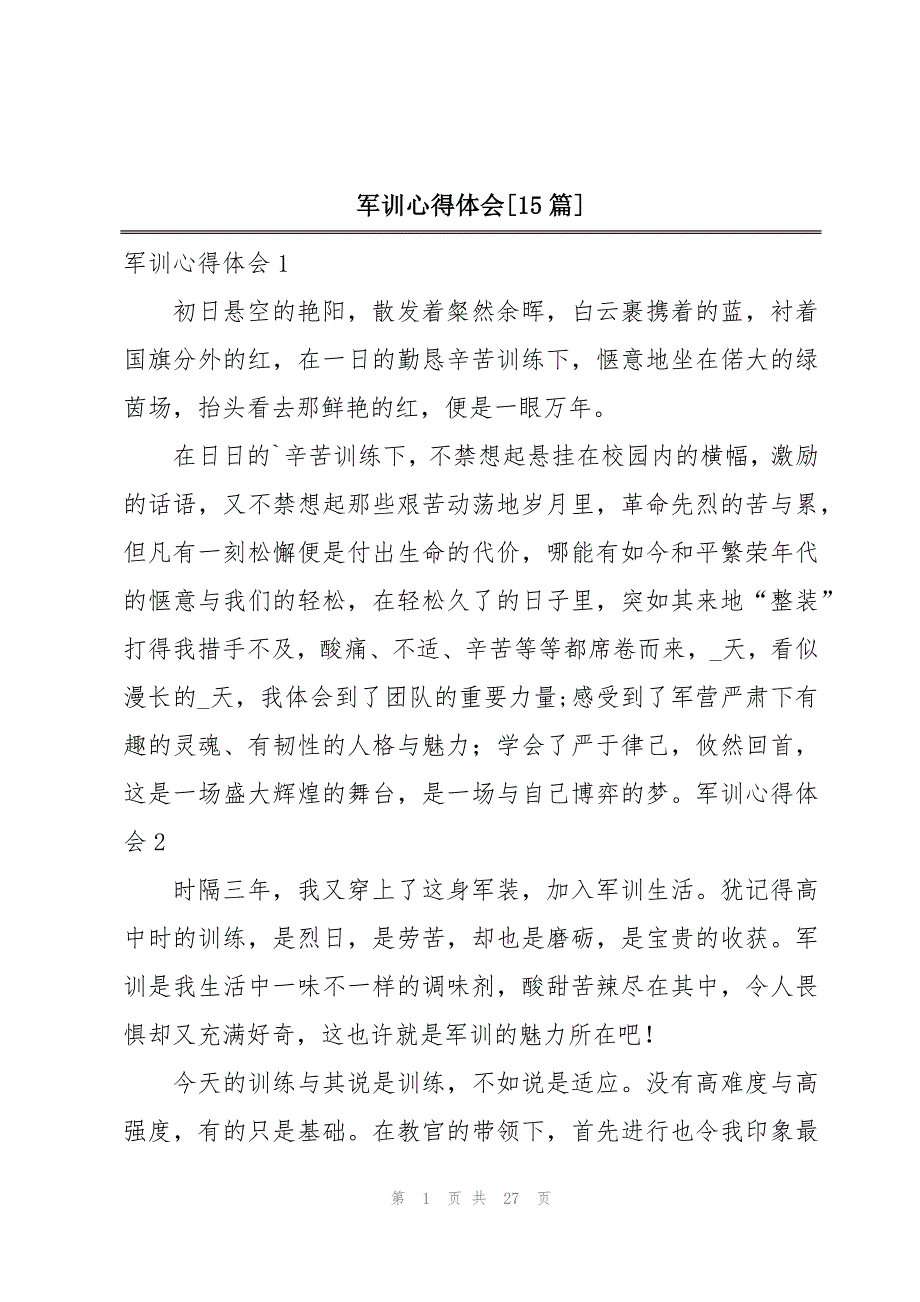 军训心得体会[15 篇]
军训心得体会 1
初日悬空的艳阳，散发着粲然余晖，白云裹携着的蓝，衬着
国旗分外的红，在一日的勤恳辛苦训练下，惬意地坐在偌大的绿
茵场，抬头看去那鲜艳的红，便是一眼万年。
在日日的`辛苦训练下，不禁想起悬挂在校园内的横幅，激励
的话语，又不禁想起那些艰苦动荡地岁月里，革命先烈的苦与累，
但凡有一刻松懈便是付出生命的代价，哪能有如今和平繁荣年代
的惬意与我们的轻松，在轻松久了的日子里，突如其来地“整装”
打得我措手不及，酸痛、不适、辛苦等等都席卷而来，_天，看似
漫长的_天，我体会到了团队的重要力量;感受到了军营严肃下有
趣的灵魂、有韧性的人格与魅力；学会了严于律己，攸然回首，
这是一场盛大辉煌的舞台，是一场与自己博弈的梦。军训心得体
会 2
时隔三年，我又穿上了这身军装，加入军训生活。犹记得高
中时的训练，是烈日，是劳苦，却也是磨砺，是宝贵的收获。军
训是我生活中一味不一样的调味剂，酸甜苦辣尽在其中，令人畏
惧却又充满好奇，这也许就是军训的魅力所在吧！
今天的训练与其说是训练，不如说是适应。没有高难度与高
强度，有的只是基础。在教官的带领下，首先进行也令我印象最
第 1 页 共 27 页